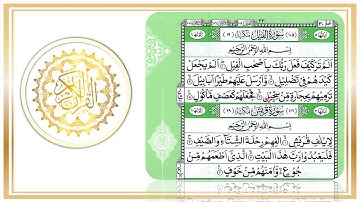 سورة الفيل مكية
بسم الله الرحمن الرحيم
ألم تر كيف فعل ربك بأصحاب الفيل ألم يجعل
كيدهم في تضليل وأرسل عليهم طيرا أبابيل
ترميهم بحجارة من سجيل فجعلهم كعصف مأكول
سورة قريش مكية
بسم الله الرحمن الرحيم
لإيلف قريش إلفهم رحلة الشتاء والصيف
فليعبدوا رب هذا البيت الذي أطعمهم من
جوع وآمنهم من خوف
القرآن الكريم